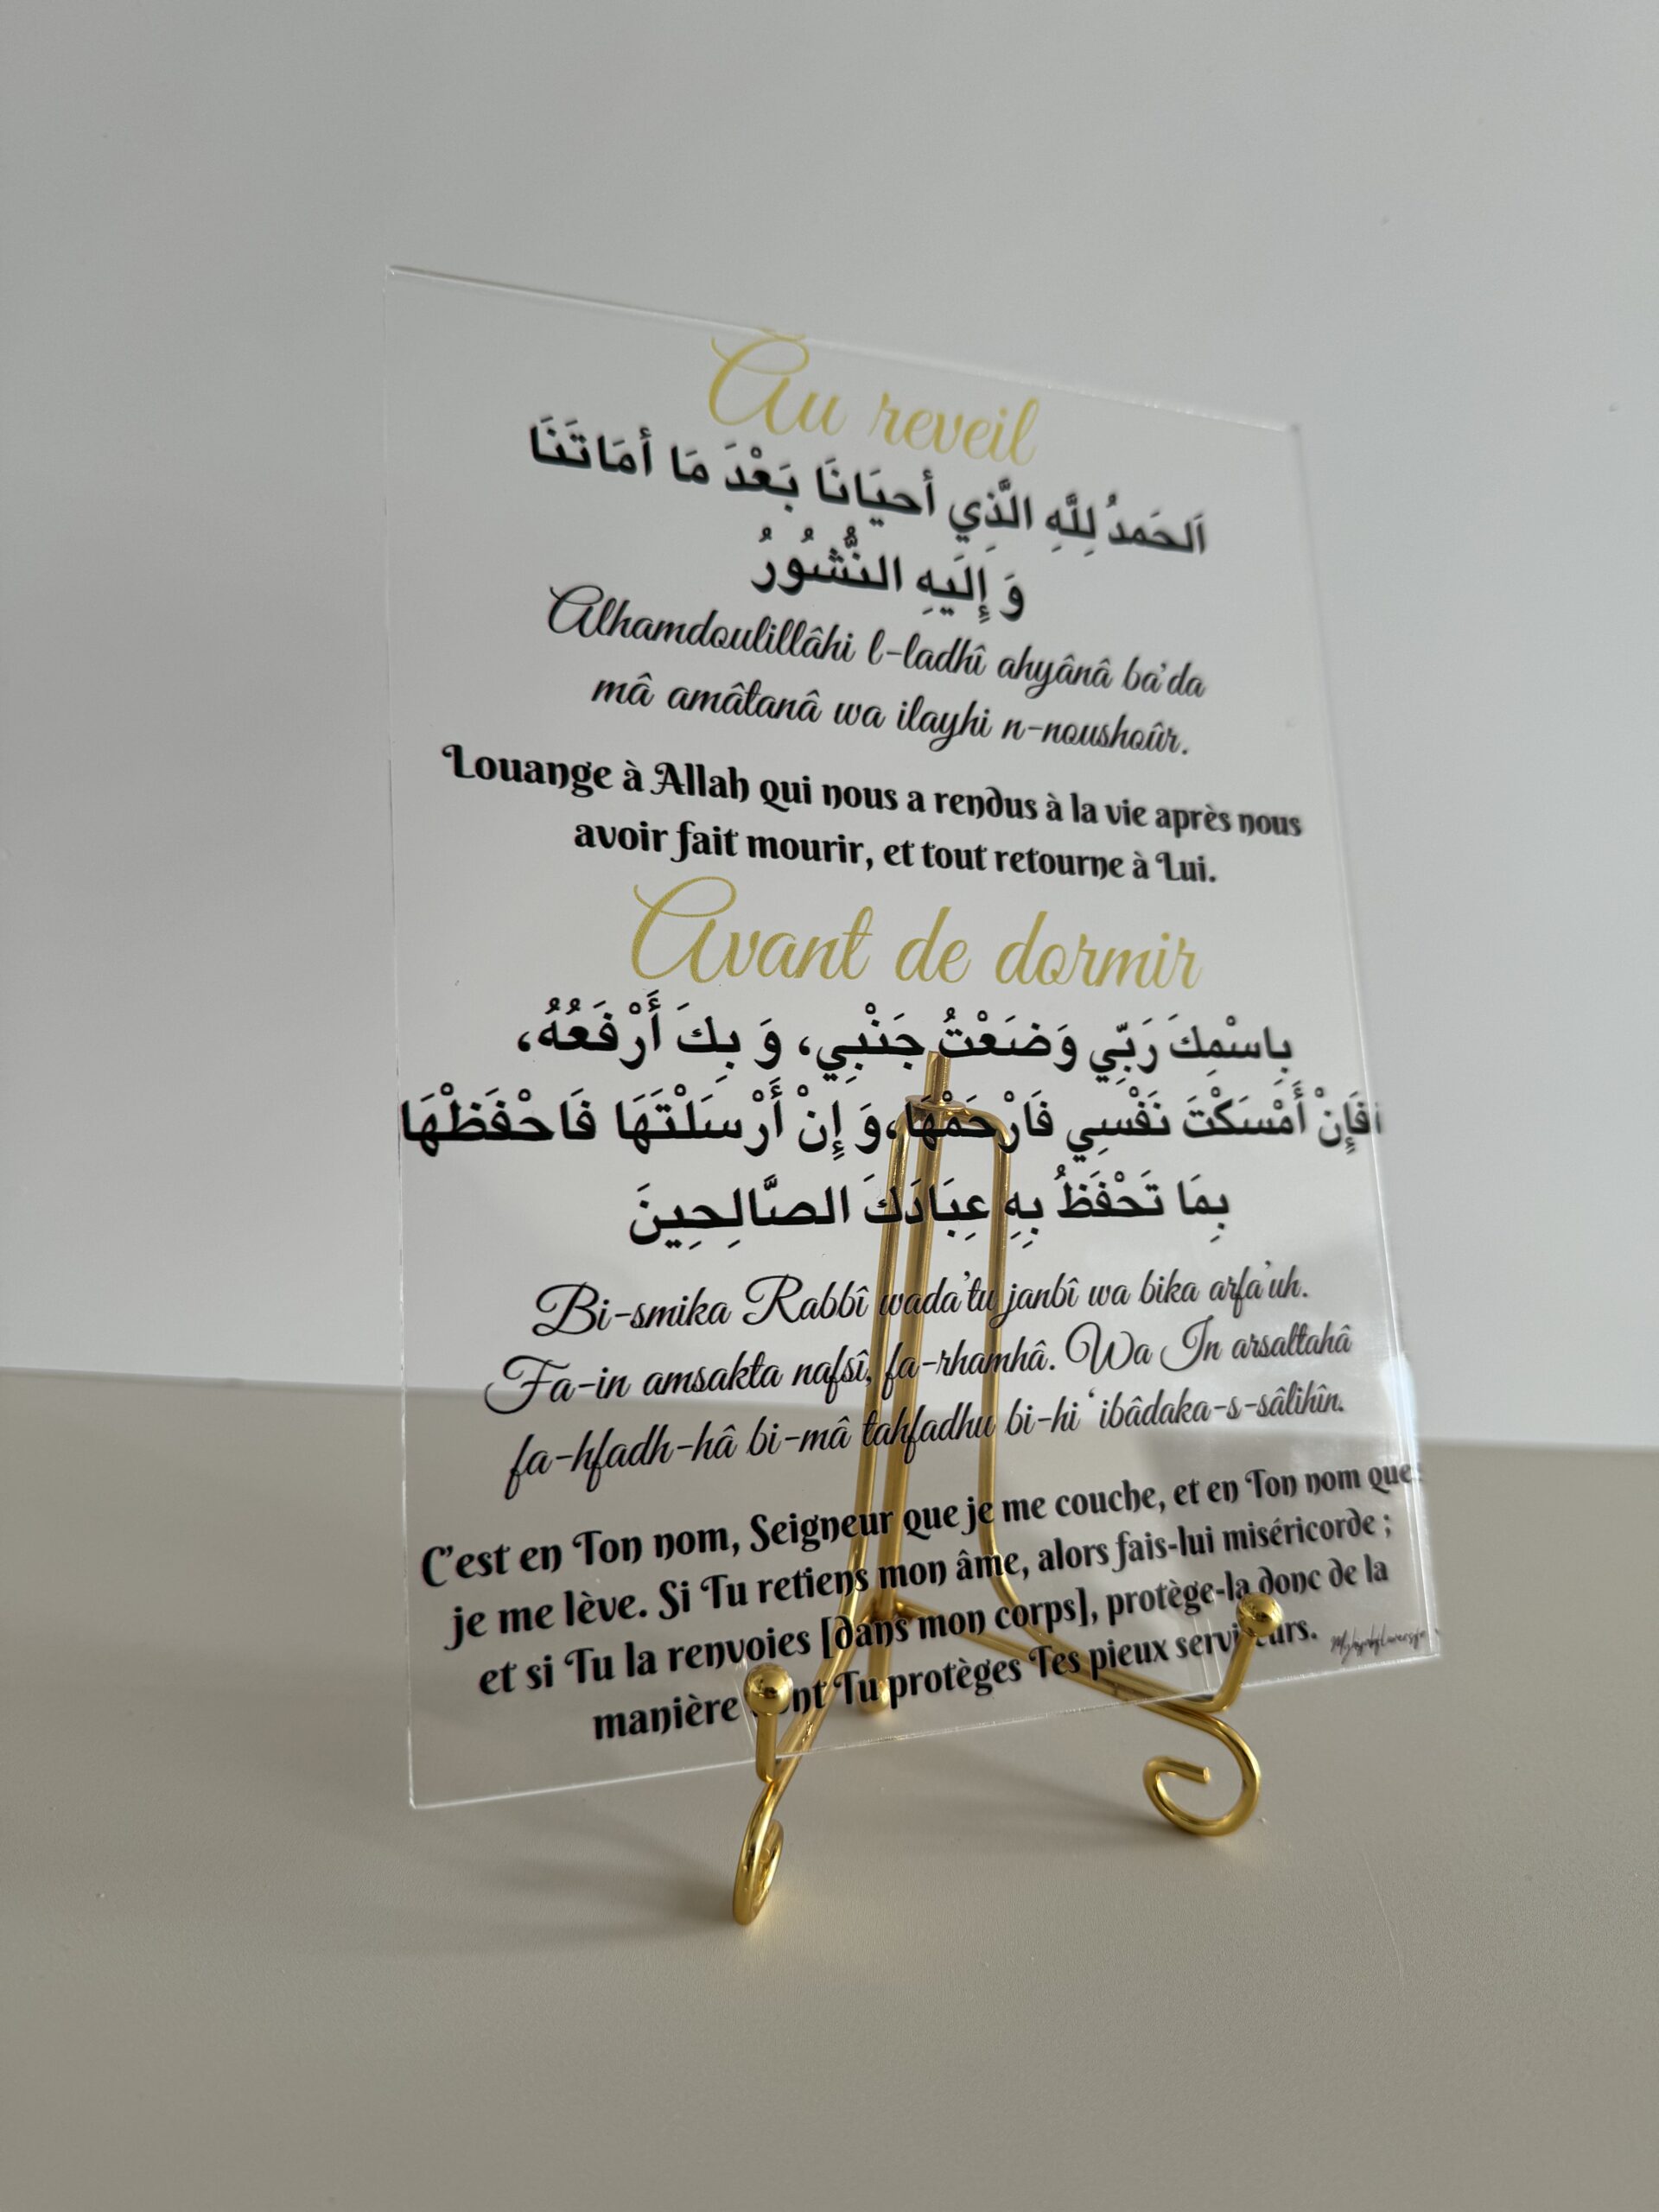 Au reveil
اَلحَمدُ لِلَّهِ الَّذِي أحيَانَا بَعْدَ مَا أمَاتَنَا
وَ إِلَيهِ النُّشُورُ
Alhamdoulillâhi l-ladhî ahyânâ ba'da
mâ amâtanâ wa ilayhi n-noushoûr.
Louange à Allah qui nous a rendus à la vie après nous
avoir fait mourir, et tout retourne à Lui.
Avant de dormir
بِاسْمِكَ رَبِّي وَضَعْتُ جَنْبِي، وَ بِكَ أَرْفَعُهُ،
فَإِنْ أَمْسَكْتَ نَفْسِي فَارْحَمْهَا،وَ إِنْ أَرْسَلْتَهَا فَاحْفَظْهَا
بِمَا تَحْفَظُ بِهِ عِبَادَكَ الصَّالِحِينَ
Bi-smika Rabbî wada'tu janbî wa bika arfa'uh.
Fa-in amsakta nafsî, fa-rhamhâ. Wa In arsaltahâ
fa-hfadh-hâ bi-mâ tahfadhu bi-hi 'ibâdaka-s-sâlihîn.
C'est en Ton nom, Seigneur que je me couche, et en Ton nom que
je me lève. Si Tu retiens mon âme, alors fais-lui miséricorde ;
et si Tu la renvoies [dans mon corps], protège-la donc de la
manière dont Tu protèges Tes pieux serviteurs.